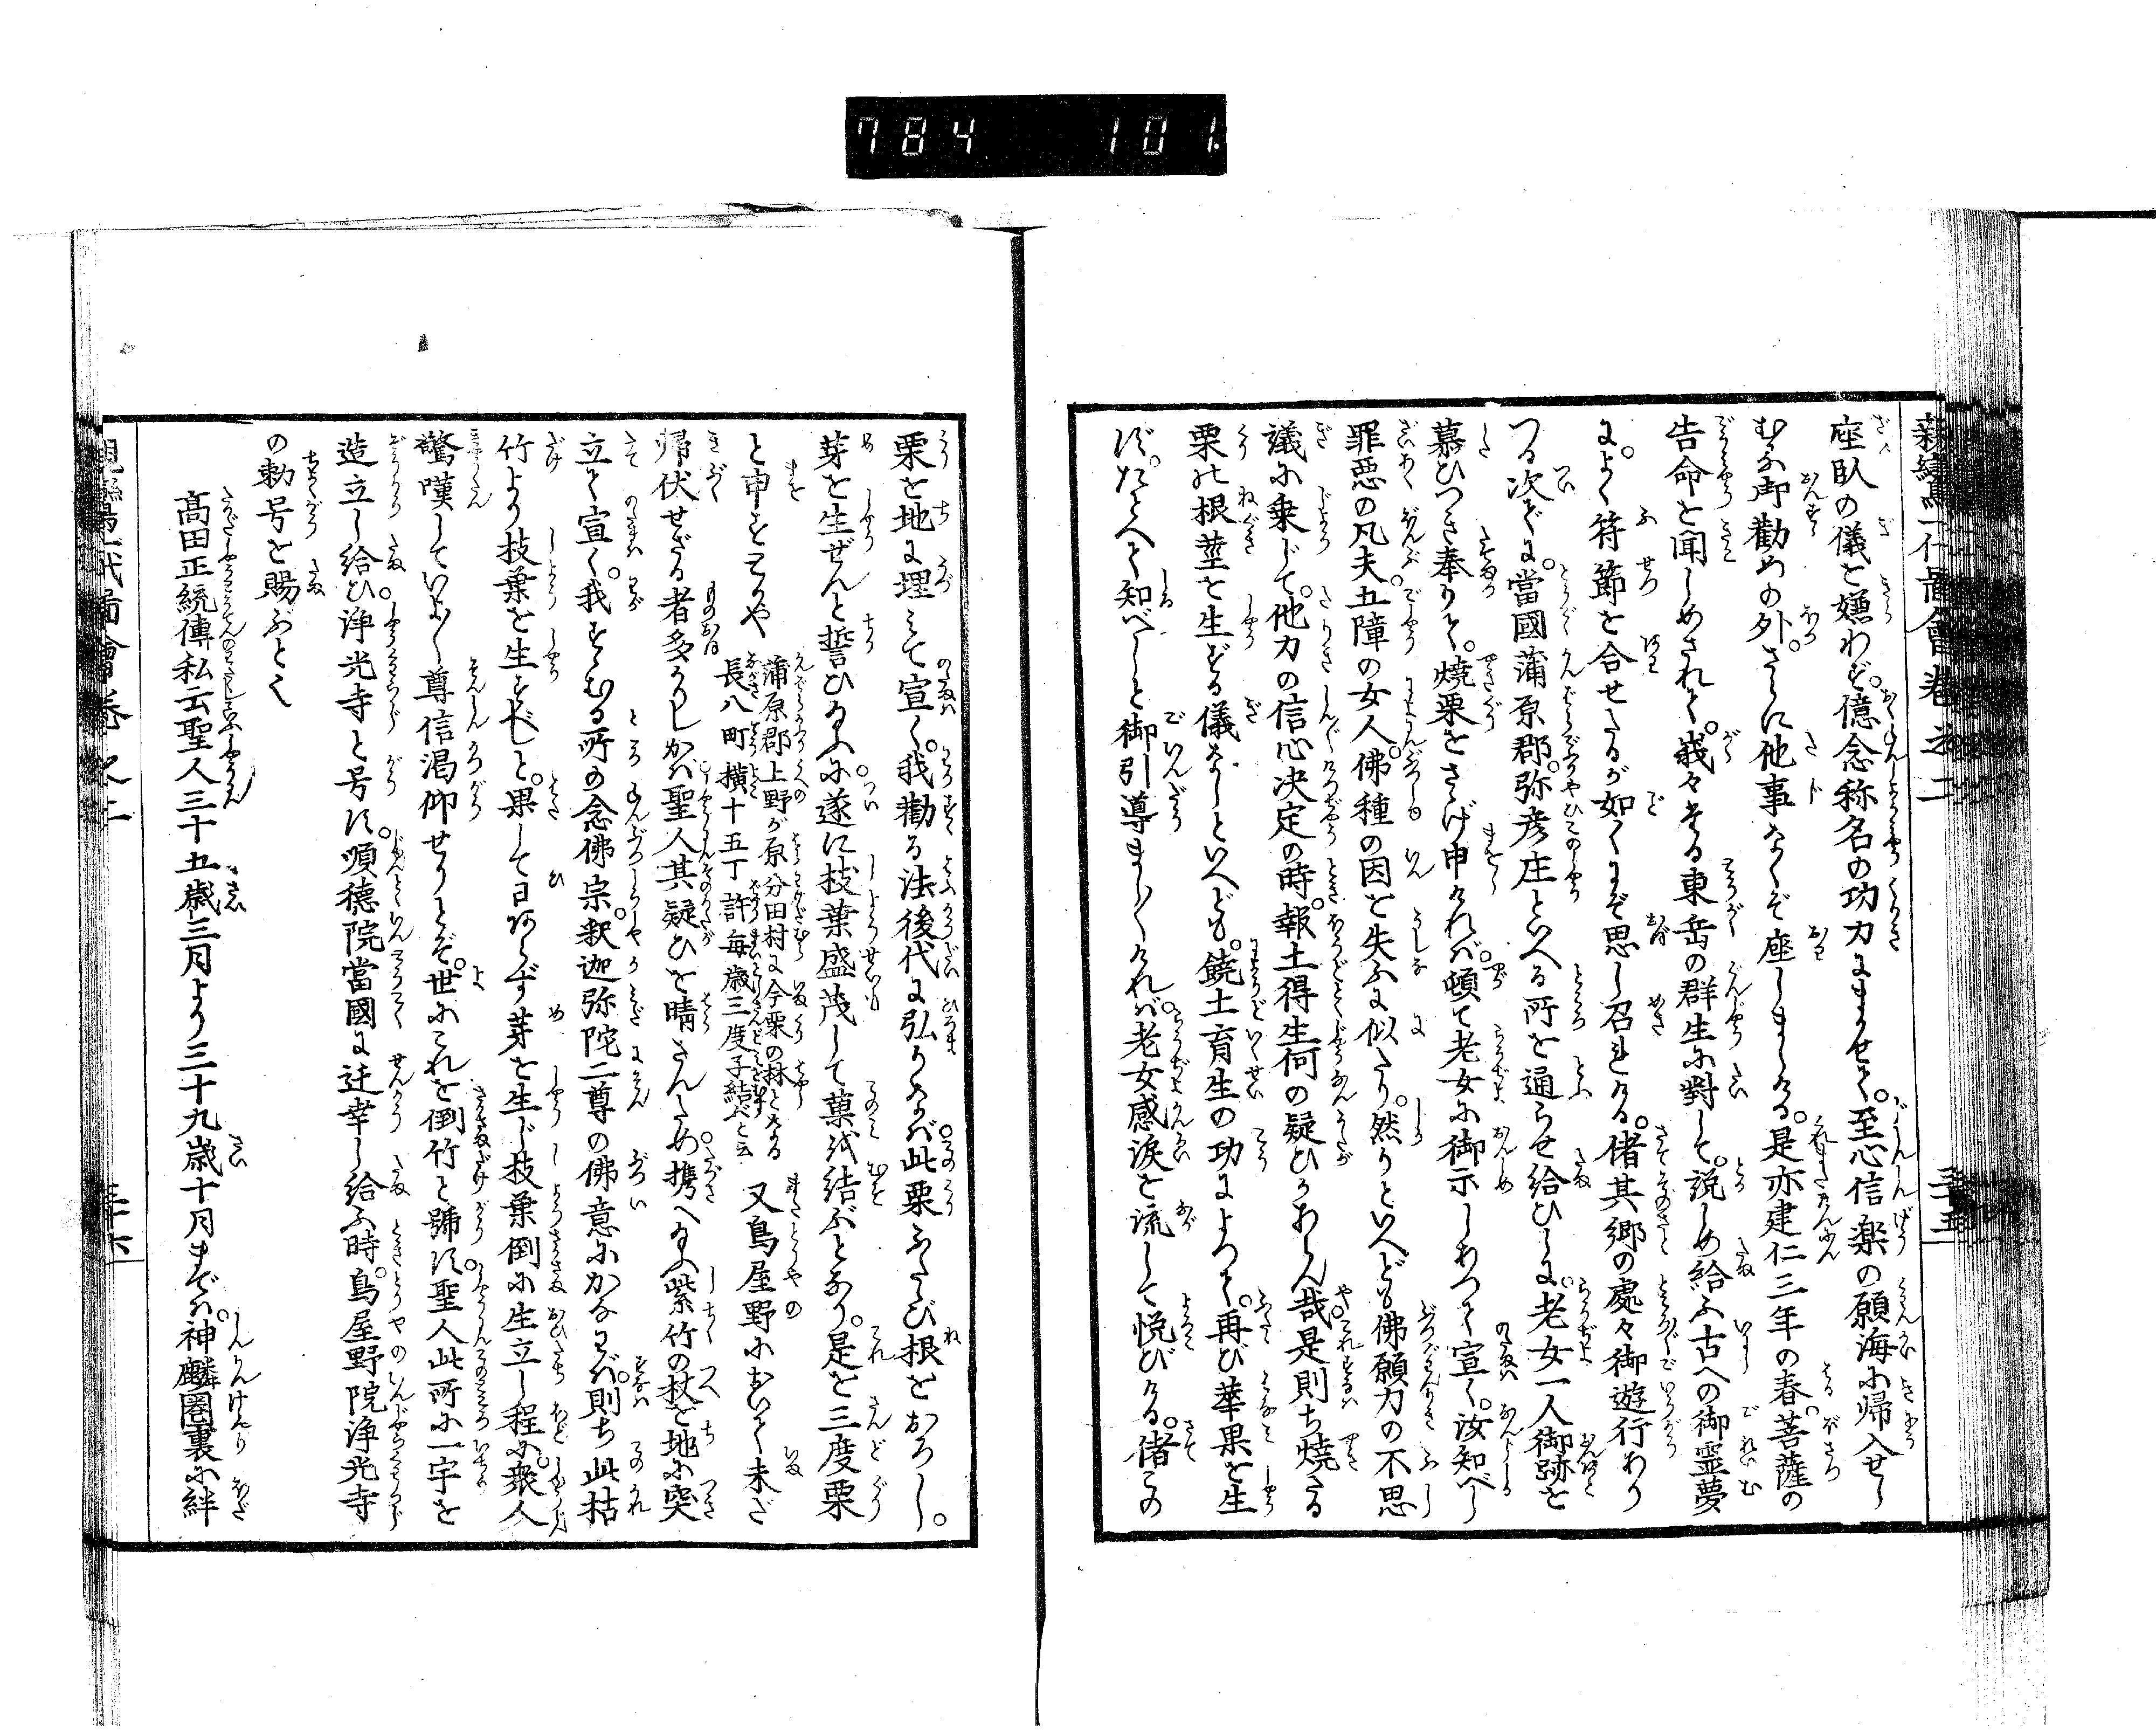 784 101.
親鸞一代啚會卷之二 三十五
座臥の儀を嫌わず。億念称名の功力にまかせて。至心信楽の願海に帰入せし
むる御勧めの外。さらに他事なくぞ座しましける。是亦建仁三年の春。菩薩の
告命を聞しめされて。峩々たる東岳の群生に對して。説しめ給ふ古への御霊夢
に。よく符節を合せたるが如くにぞ思し召れける。偖其郷の處々御遊行わり
つる次でに。當國蒲原郡。弥彦庄といへる所を通らせ給ひしに。老女一人御跡を
慕ひつき奉りて。焼栗をさゝげ申ければ。頓て老女に御示しわつて宣く。汝知べし
罪悪の凡夫。五障の女人。佛種の因を失ふに似たり。然りといへども佛願力の不思
議に乗じて。他力の信心决定の時。報土得生何の疑ひかあらん哉。是則ち焼たる
栗の根莖を生ずる儀なしといへども。鐃土育生の功によつて。再び華果を生
ず。たとへて知べしと御引導ましましければ。老女感涙を流して悦びける。偖この
栗を地に埋みて宣く。我勸る法後代に弘らば。此栗ふたゝび根をおろし。
芽を生ぜんと誓ひ給ふに。遂に枝葉盛茂して菓を結ぶとなり。是を三度栗
と申すとかや 蒲原郡上野が原分田村に今栗の林となる
長八町横十五丁許毎歳三度子結べと云 又鳥屋野において未だ
帰伏せざる者多かりしかば。聖人其疑ひを晴さんため。携へ給ふ紫竹の杖を地に突
立て宣く。我すゝむる所の念佛宗。釈迦弥陀二尊の佛意にかなはゞ。則ち此枯
竹より枝葉を生ずべしと。果して日あらず芽を生じ枝葉倒に生立し程に。衆人
驚嘆していよいよ尊信渇仰せりとぞ。世にこれを倒竹と號す。聖人此所に一宇を
造立し給ひ。浄光寺と号す。順德院當國に迁幸し給ふ時。鳥屋野院浄光寺
の勅号を賜ふとく
髙田正統傳私云聖人三十五歳三月より三十九歳十月までは。神麟圏裏に絆
親鸞一代啚會卷之二 三十六